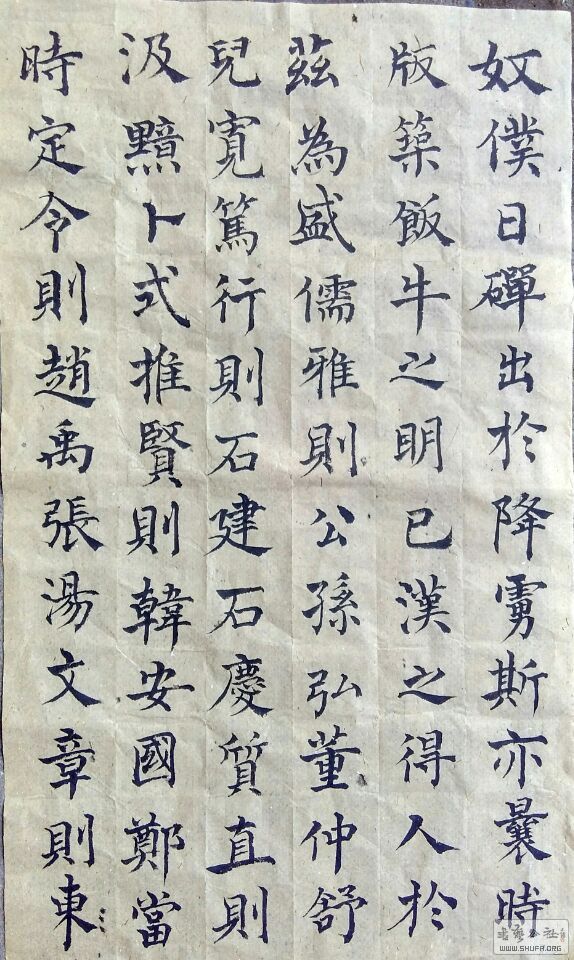 奴僕日磾出於降虜斯亦曩時
版築飯牛之明已漢之得人於
茲為盛儒雅則公孫弘董仲舒
兒寬篤行則石建石慶質直則
汲黯卜式推賢則韓安國鄭當
時定令則趙禹張湯文章則東
WWW.SHUFA.ORG